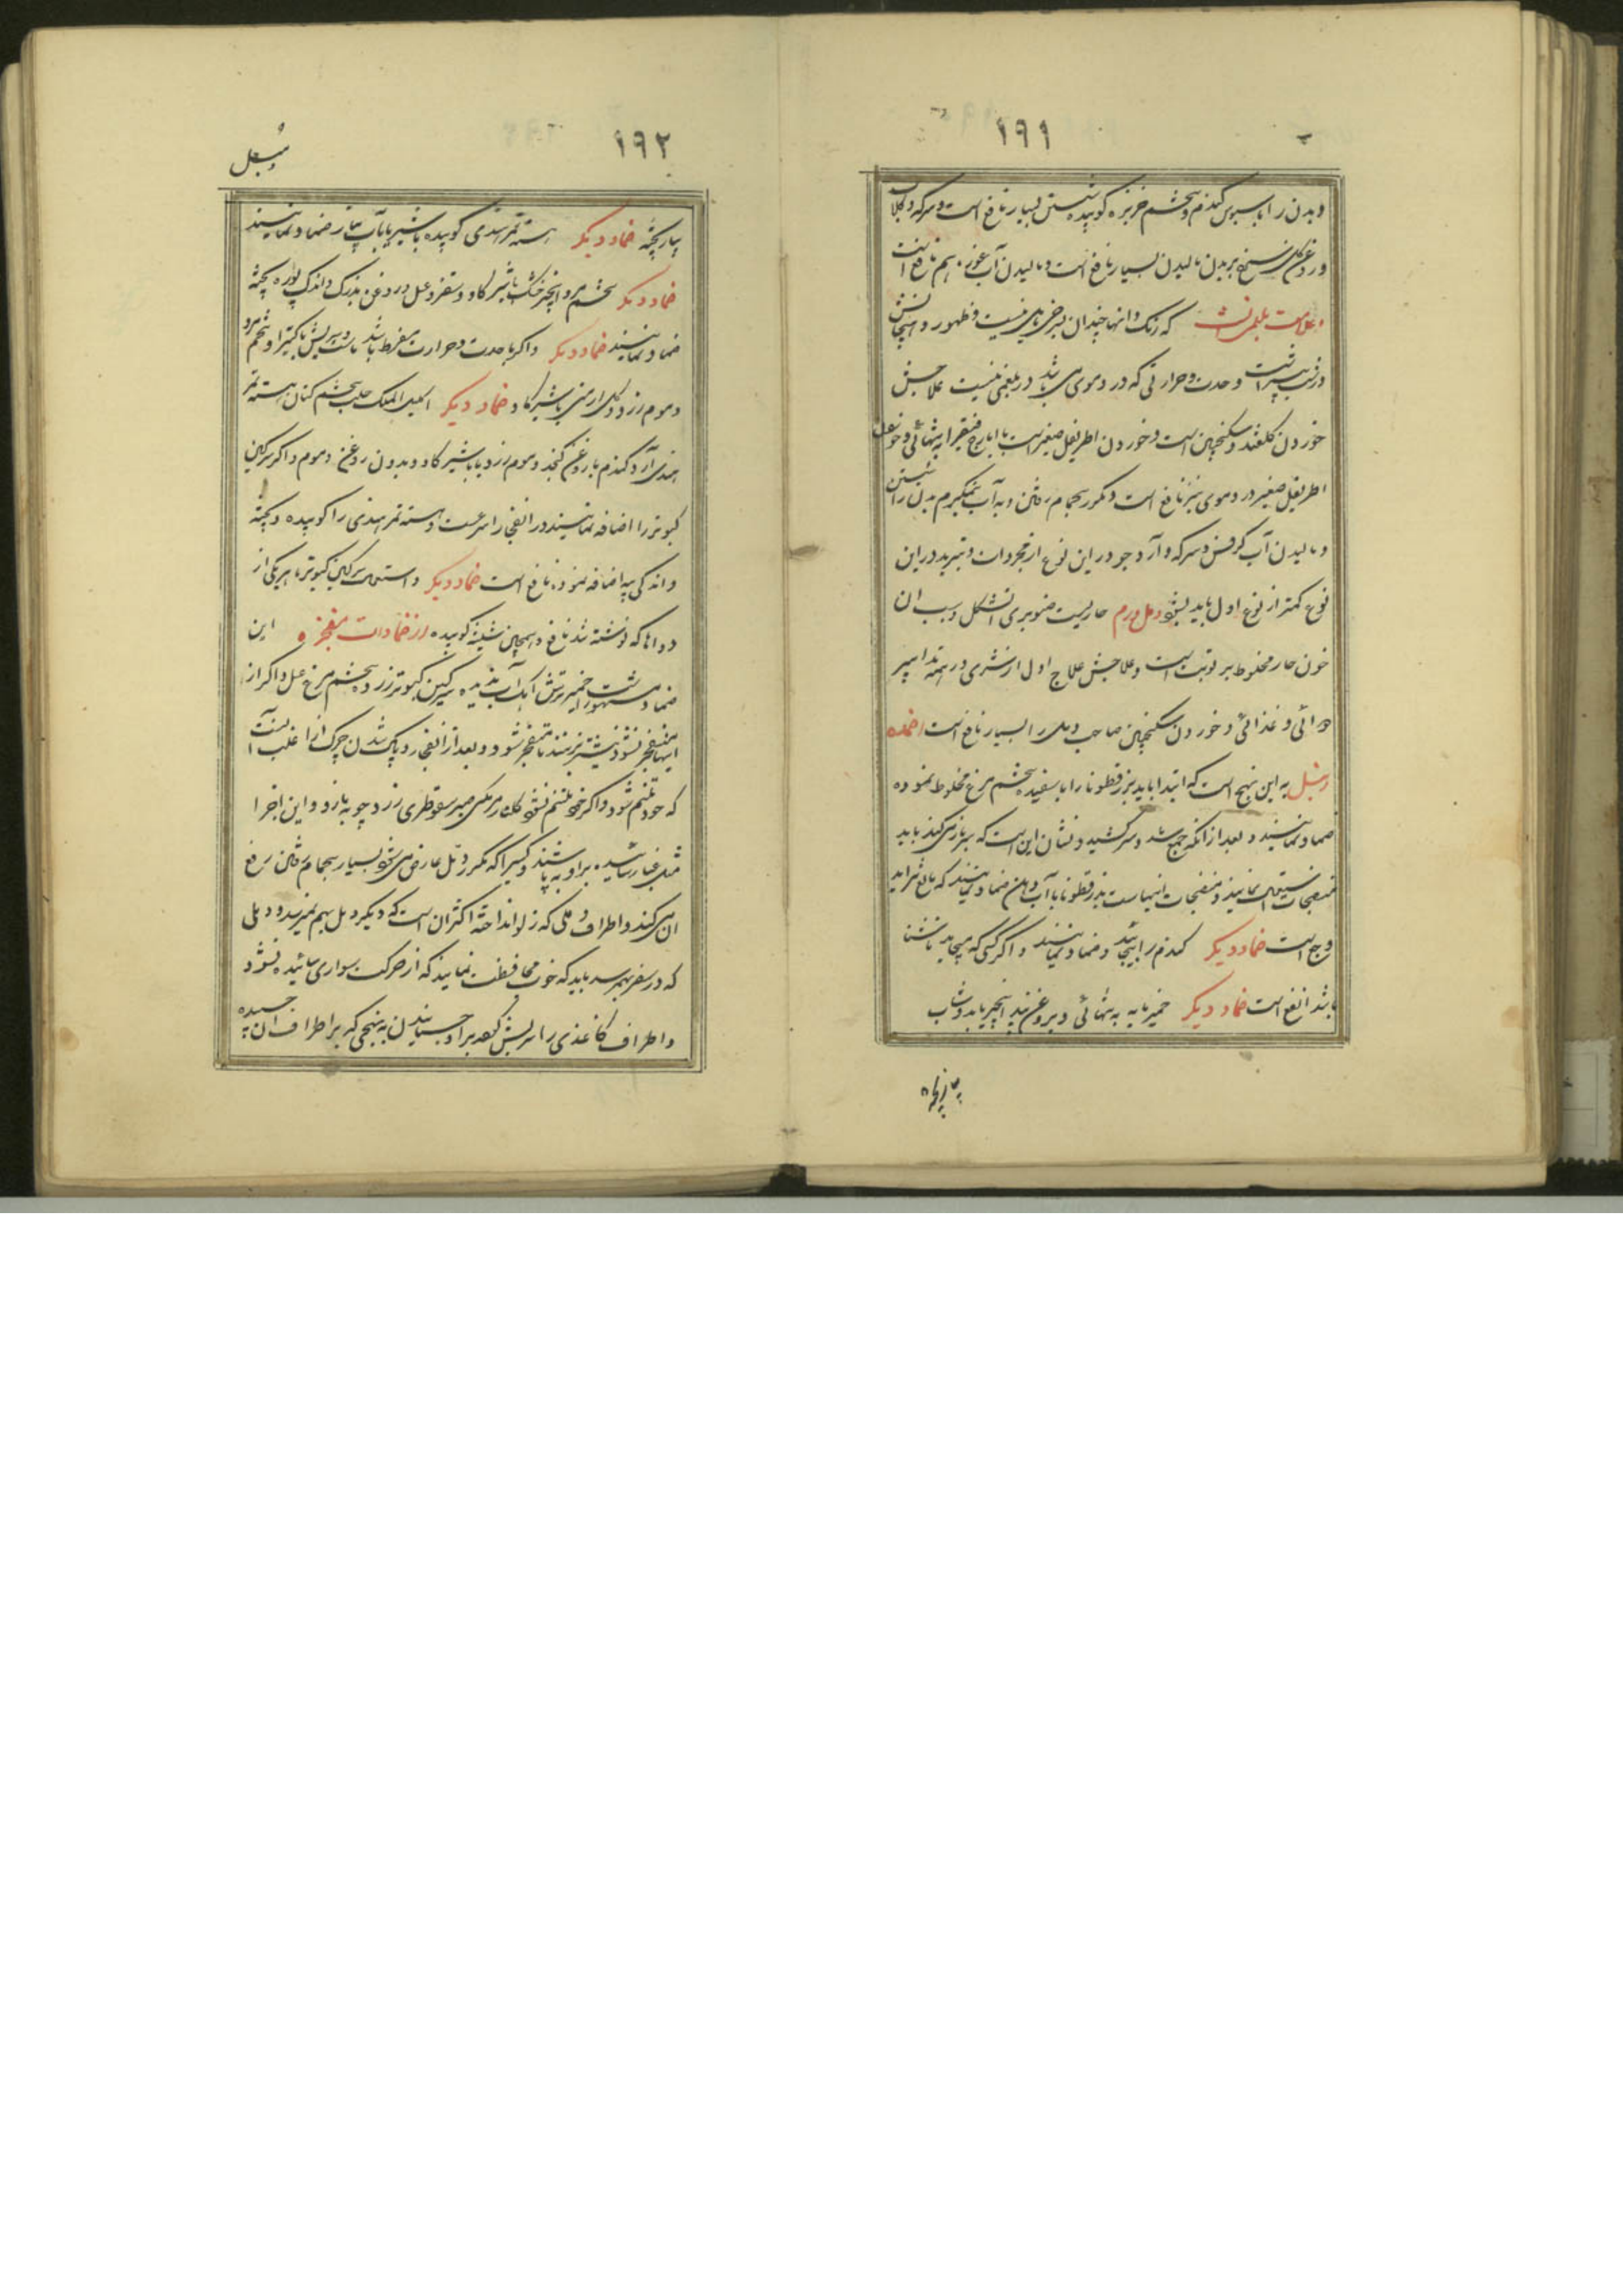 ١٩١
وبدن را با سبوس گندم و تخم خربزه کوبیده شستن بسیار نافع است و سرکه و گلاب
وروغن گل سرخ بر بدن مالیدن بسیار نافع است ومالیدن آب غوره هم نافع است
وعلامت بلغمی آنست که رنگ دانها چندان بسرخی مایل نیست وظهور و هیجانش
در شب بیشتر است وحدت وحرارتی که در دموی می باشد در بلغمی نیست علاجش
خوردن گلقند وسکنجبین است وخوردن اطریفل صغیر است با ایارج فیقرا به تنهائی وخوردن
اطریفل صغیر در دموی نیز نافع است ومکرر بحمام رفتن وبه آب نمک گرم بدن را شستن
ومالیدن آب کرفس وسرکه وآرد جو در این نوع از مجربات وتبرید در این
نوع کمتر از نوع اول باید بشود دمل ورم حاریست صنوبری الشکل وسبب آن
خون حار مخلوط برطوبت است وعلاجش علاج اول از شری در تدابیر
دوائی وغذائی وخوردن سکنجبین صاحب دمل را بسیار نافع است اضمده
دنبل به این نهج است که ابتدا باید بزرقطونا را با سفیده تخم مرغ مخلوط نموده
ضماد نمایند وبعد از آنکه جمع شد وسر کشید ونشان این است که سر باز می کند باید
منضجات استعمال نمایند ومنضجات اینهاست بزرقطونا با آب دهان ضماد نمایند که
وجع است ضماد دیگر گندم را بجایند وضماد نمایند واگر کسی که میجاید ناشتا
باشد انفع است ضماد دیگر خمیرمایه به تنهائی وبروغن زیت انجیر یا بدوشاب
پیاز پخته
١٩٢
دنبل
پیاز پخته ضماد دیگر هسته تمر هندی کوبیده با شیر یا با آب پیاز ضماد نمایند
ضماد دیگر تخم مرو انجیر خشک با شیر گاو وسقز وعسل وروغن بزرک واندک بوره پخته
ضماد نمایند ضماد دیگر واگر با حدت وحرارت مفرط باشد ماست وترش با کتیرا وتخم مرو
وموم زرد وگل ارمنی با شیر گاو ضماد دیگر اکلیل الملک حلبه تخم کتان هسته تمر
هندی آرد گندم با روغن کنجد وموم زرد یا با شیر گاو وبدون روغن وموم واگر سرگین
کبوتر را اضافه نمایند در انفجار اسرعست وهسته تمر هندی را کوبیده وپخته
واندکی پیه اضافه نموده نافع است ضماد دیگر واستعمال سرگین کبوتر با هر یک از
دواها که نوشته شد نافع وهمچنین شیشه کوبیده از ضمادات مفجره این
ضماد مشهور است خمیر ترش آهک آب ندیده سرگین کبوتر زرده تخم مرغ عسل واگر از
اینها منفجر نشود نیشتر بزنند تا منفجر شود وبعد از انفجار وپاک شدن چرک آن اغلب آنست
که خود ملتئم شود واگر خود ملتئم نشود گلنار مرمکی صبر سقوطری زرد چوبه بازو واین اجزا
مثل غبار سائیده بر او بپاشند وکسی را که مکرر دمل عارض می شود بسیار بحمام رفتن رفع
آن می کند واطراف دملی که زلو انداختن اکثر آن است که دیگر دمل بهم نمیرسد ودملی
که در سفر بهم رسد باید که خوب محافظت نمایند که از حرکت سواری سائیده نشود
واطراف کاغذی را سریش کرده بر او چسبانیدن به نهجی که بر اطراف آن چسبیده